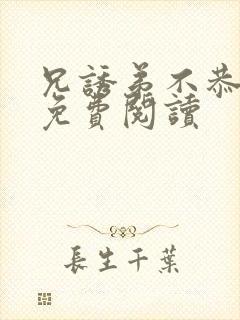 兄誘弟不恭
免費閱讀
長生千葉